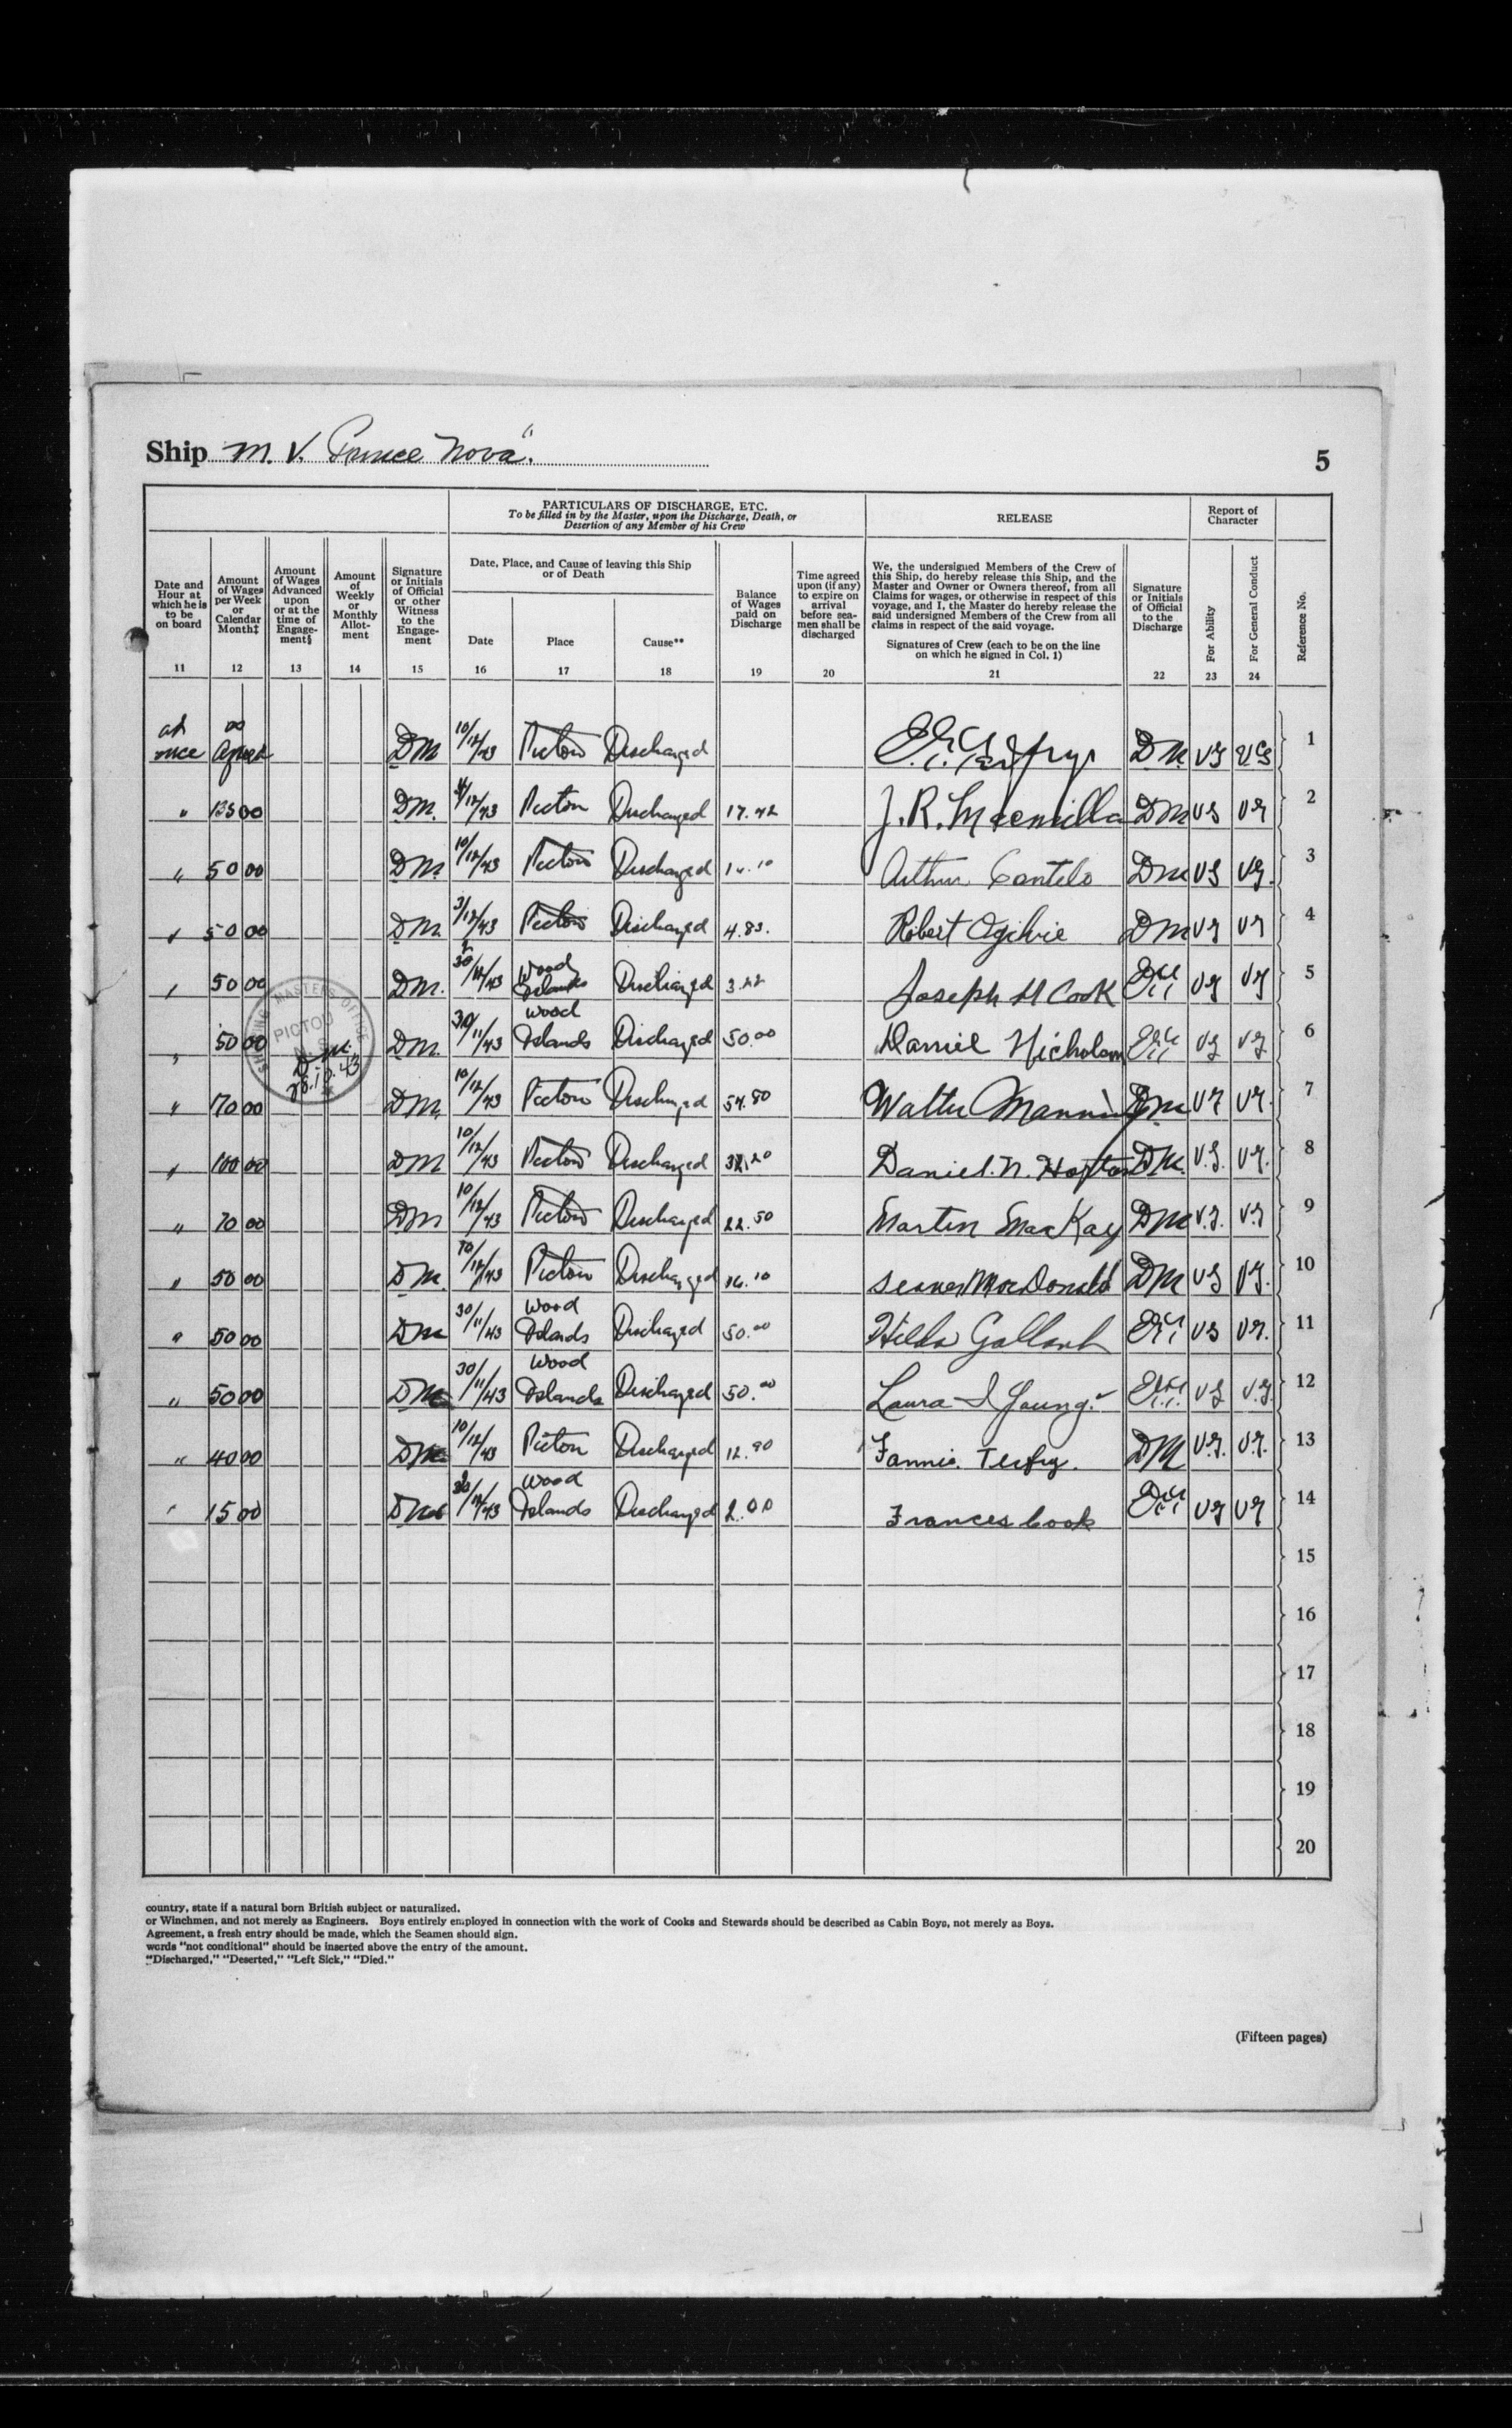 Ship M. V. Prince Nova".
5
PARTICULARS OF DISCHARGE, ETC.
To be filled in by the Master, upon the Discharge, Death, or
Desertion of any Member of his Crew
RELEASE
Report of
Character
Date and
Hour at
which he is
to be
on board
Amount
of Wages
per Week
or
Calendar
Month‡
Amount
of Wages
Advanced
upon
or at the
time of
Engage-
ment§
Amount
of
Weekly
or
Monthly
Allot-
ment
Signature
or Initials
of Official
or other
Witness
to the
Engage-
ment
Date, Place, and Cause of leaving this Ship
or of Death
Date
Place
Cause**
Balance
of Wages
paid on
Discharge
Time agreed
upon (if any)
to expire on
arrival
before sea-
men shall be
discharged
We, the undersigned Members of the Crew of
this Ship, do hereby release this Ship, and the
Master and Owner or Owners thereof, from all
Claims for wages, or otherwise in respect of this
voyage, and I, the Master do hereby release the
said undersigned Members of the Crew from all
claims in respect of the said voyage.
Signatures of Crew (each to be on the line
on which he signed in Col. 1)
Signature
or Initials
of Official
to the
Discharge
For Ability
For General Conduct
Reference No.
11 12 13 14 15 16 17 18 19 20 21 22 23 24
at once as agreed DM 10/12/43 Pictou Discharged DM VG VG 1
" 135 00 DM. /12/43 Pictou Discharged 17.42 J. R. Macmilla DM VG VG 2
" 50 00 DM. 10/12/43 Pictou Discharged Arthur Cantelo DM VG VG. 3
" 50 00 DM. 3/12/43 Pictou Discharged 4.83. Robert Ogilvie DM VG VG 4
" 50 00 DM. /43 Wood Islands Discharged 3.22 Joseph H Cook VG VG 5
" 50 00 DM. 30/11/43 Wood Islands Discharged 50.00 Daniel Nicholson VG VG 6
" 170 00 DM. 10/12/43 Pictou Discharged 54.80 Walter Manning DM VG VG. 7
" 100 00 DM 10/12/43 Pictou Discharged Daniel. N. DM. V.G. VG. 8
" 70 00 DM 10/12/43 Pictou Discharged 22.50 Martin MacKay DM V.G. V.G 9
" 50 00 DM. 10/12/43 Pictou Discharged 16.10 MacDonald DM VG VG. 10
" 50 00 DM 30/11/43 Wood Islands Discharged 50.00 Hilda Gallant VG VG. 11
" 50 00 DM 30/11/43 Wood Islands Discharged 50.00 Laura I Young. VG V.G. 12
" 40 00 DM 10/12/43 Pictou Discharged 12.90 Fannie. DM V.G. V.G. 13
" 15 00 DM /43 Wood Islands Discharged 2.00 Frances Cook VG VG 14
SHIPPING MASTERS OFFICE
PICTOU
N. S.
D.M.
15
16
17
18
19
20
country, state if a natural born British subject or naturalized.
or Winchmen, and not merely as Engineers. Boys entirely employed in connection with the work of Cooks and Stewards should be described as Cabin Boys, not merely as Boys.
Agreement, a fresh entry should be made, which the Seamen should sign.
words "not conditional" should be inserted above the entry of the amount.
"Discharged," "Deserted," "Left Sick," "Died."
(Fifteen pages)